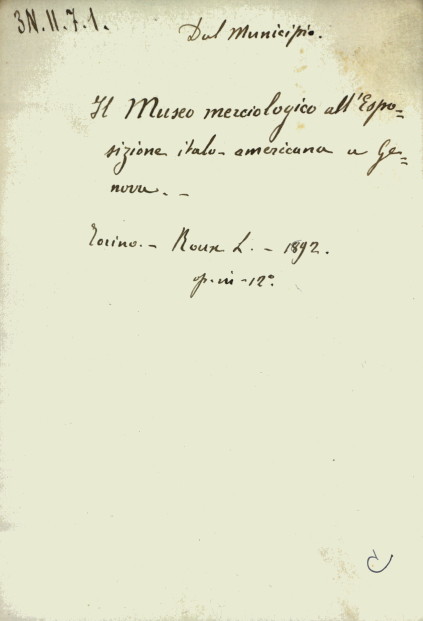 3N.II.7.1.
Dal Municipio.
Il Museo merciologico all'Espo=
sizione italo-americana a Ge=
nova. -
Torino. - Roux L. - 1892.
op. in-12°.